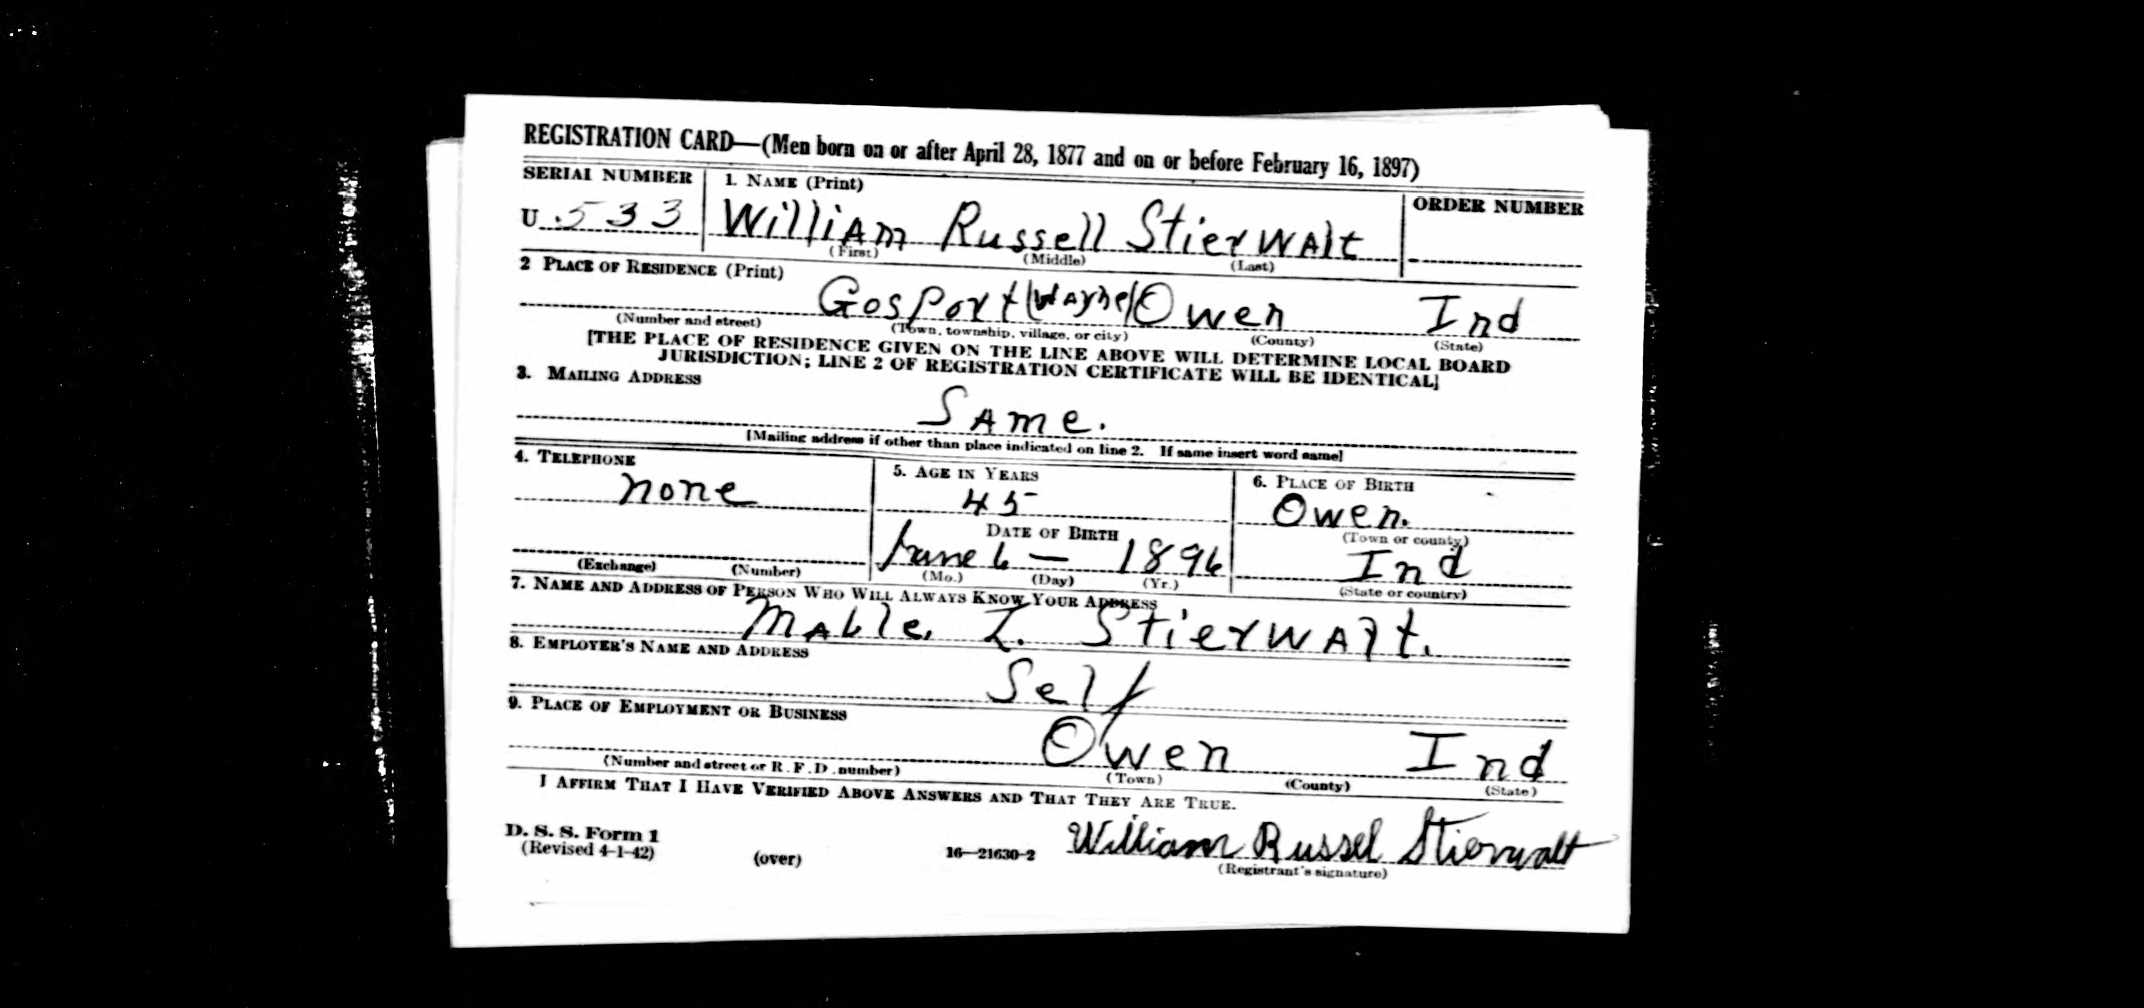 REGISTRATION CARD—(Men born on or after April 28, 1877 and on or before February 16, 1897)
SERIAL NUMBER 1. NAME (Print) ORDER NUMBER
U 533 William Russell Stierwalt
(First) (Middle) (Last)
2 PLACE OF RESIDENCE (Print)
Gosport (Wayne) Owen Ind
(Number and street) (Town, township, village, or city) (County) (State)
[THE PLACE OF RESIDENCE GIVEN ON THE LINE ABOVE WILL DETERMINE LOCAL BOARD
JURISDICTION; LINE 2 OF REGISTRATION CERTIFICATE WILL BE IDENTICAL]
3. MAILING ADDRESS
Same.
[Mailing address if other than place indicated on line 2. If same insert word same]
4. TELEPHONE 5. AGE IN YEARS 6. PLACE OF BIRTH
none 45 Owen.
DATE OF BIRTH (Town or county)
June 6 — 1896 Ind
(Exchange) (Number) (Mo.) (Day) (Yr.) (State or country)
7. NAME AND ADDRESS OF PERSON WHO WILL ALWAYS KNOW YOUR ADDRESS
Mable. I. Stierwalt.
8. EMPLOYER'S NAME AND ADDRESS
Self
9. PLACE OF EMPLOYMENT OR BUSINESS
Owen Ind
(Number and street or R. F. D. number) (Town) (County) (State)
I AFFIRM THAT I HAVE VERIFIED ABOVE ANSWERS AND THAT THEY ARE TRUE.
D. S. S. Form 1
(Revised 4-1-42) (over) 16—21630-2 William Russel Stierwalt
(Registrant's signature)